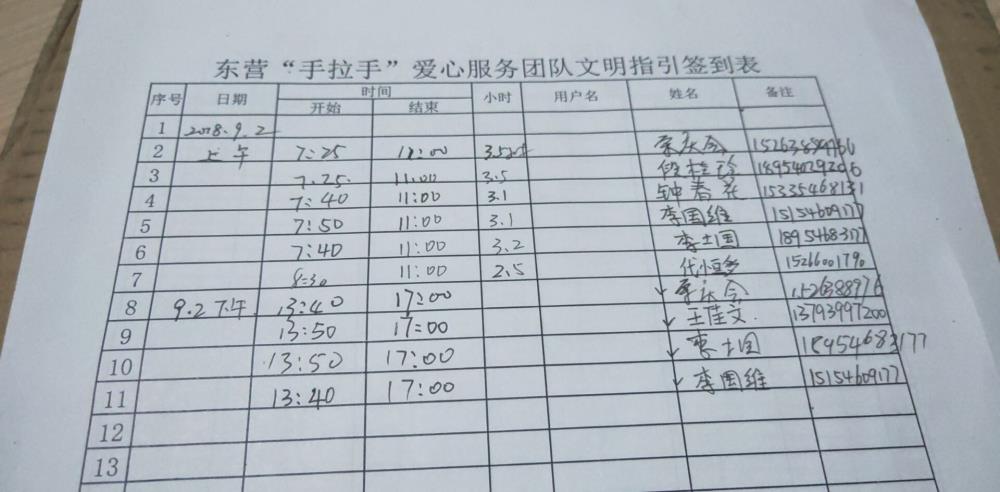 东营“手拉手”爱心服务团队文明指引签到表
序号 日期 时间 小时 用户名 姓名 备注
开始 结束
1 2018.9.2
2 上午 7:25 11:00 3.5
3 7.25 11.00 3.5 段桂珍 18954029206
4 7:40 11:00 3.1 钟春花 15335468131
5 7:50 11:00 3.1 李国维 15154609177
6 7:40 11:00 3.2 李士国 18954683177
7 8:30 11:00 2.5 1526600179
8 9.2下午 13:40 17:00
9 13:50 17:00 王佳文 13793997200
10 13:50 17:00 李士国 18954683177
11 13:40 17:00 李国维 15154609177
12
13